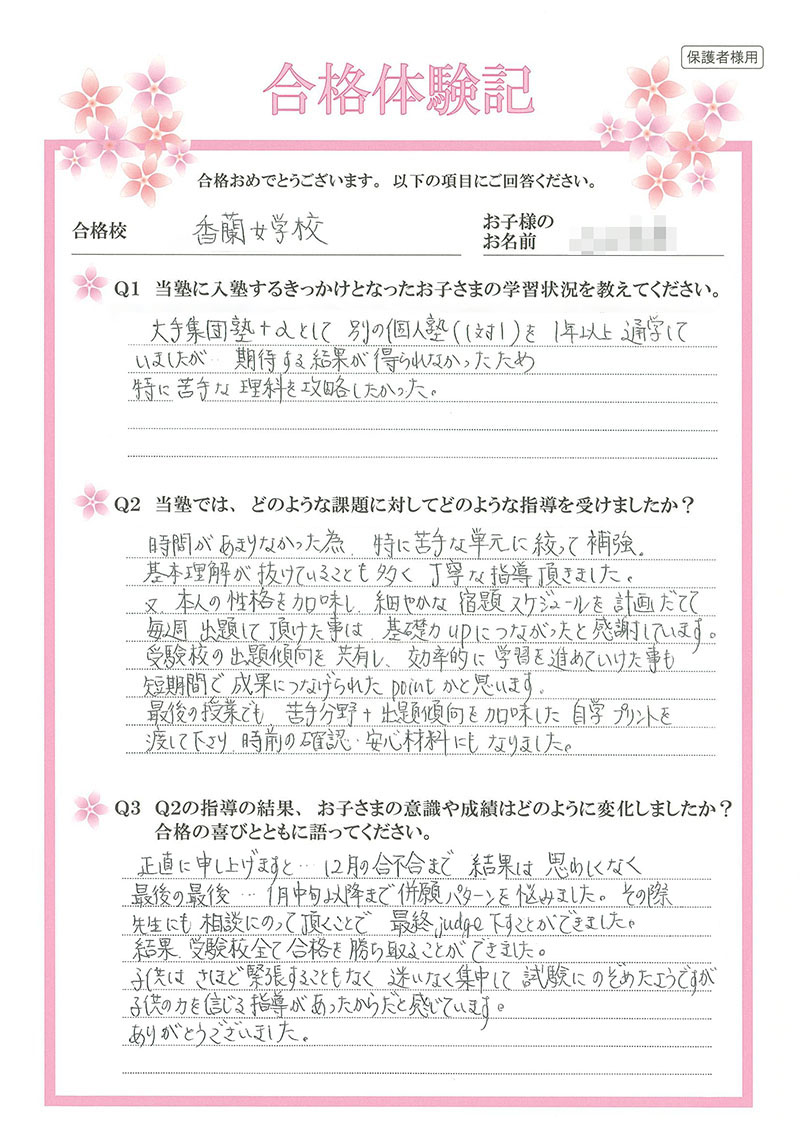 保護者様用
合格体験記
合格おめでとうございます。以下の項目にご回答ください。
合格校 香蘭女学校
お子様の
お名前
Q1 当塾に入塾するきっかけとなったお子さまの学習状況を教えてください。
大手集団塾+αとして 別の個人塾(1対1)を 1年以上 通学して
いましたが… 期待する結果が得られなかったため
特に苦手な理科を攻略したかった。
Q2 当塾では、どのような課題に対してどのような指導を受けましたか？
時間があまりなかった為、特に苦手な単元に絞って補強。
基本理解が抜けていることも多く 丁寧な指導頂きました。
又、本人の性格を加味し、細やかな宿題スケジュールを計画だてて
毎週 出題して頂けた事は、基礎力upにつながったと感謝しています。
受験校の出題傾向を共有し、効率的に学習を進めていけた事も
短期間で成果につなげられたpointかと思います。
最後の授業でも、苦手分野+出題傾向を加味した自学プリントを
渡して下さり、時前の確認・安心材料にもなりました。
Q3 Q2の指導の結果、お子さまの意識や成績はどのように変化しましたか？
合格の喜びとともに語ってください。
正直に申し上げますと… 12月の合不合まで 結果は 思わしくなく
最後の最後…1月中旬以降まで併願パターンを悩みました。その際
先生にも相談にのって頂くことで 最終judge下すことができました。
結果、受験校全て合格を勝ち取ることができました。
子供は さほど緊張することもなく 迷いなく集中して 試験にのぞめたようですが
子供の力を信じる指導があったからだと感じています。
ありがとうございました。